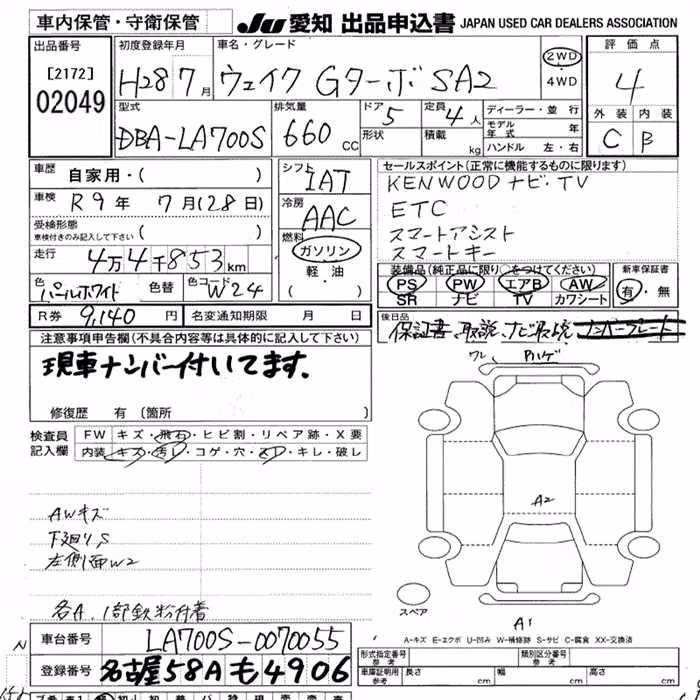 車内保管・守衛保管 JU 愛知 出品申込書 JAPAN USED CAR DEALERS ASSOCIATION
出品番号 初度登録年月 車名・グレード 評価点
[2172] H28 7月 ウェイク GターボSA2 2WD・4WD 4
02049
型式 排気量 ドア 定員 ディーラー・並行 外装 内装
DBA-LA700S 660cc 5 4人 モデル年式 年 C B
形状 積載 kg ハンドル 左・右
車歴 自家用・( ) シフト IAT セールスポイント(正常に機能するものに限ります)
車検 R9年 7月(28日) 冷房 AAC KENWOOD ナビ・TV
受検形態 ETC
車検付きのみ記入して下さい ( ) 燃料 スマートアシスト
走行 4万4千853km ガソリン スマートキー
軽油 装備品(純正品に限り○をつけてください) 新車保証書
色 パールホワイト 色替 色コード W24 ( ) PS PW エアB AW 有・無
SR ナビ TV カワシート
R券 9,140円 名変通知期限 月 日 後日品
保証書、取説、ナビ取説 ナンバープレート
注意事項申告欄(不具合内容等は具体的に記入して下さい)
現車ナンバー付いてます。
修復歴 有 (箇所 )
検査員記入欄 FW キズ・飛石・ヒビ割・リペア跡・X要
内装 キズ・汚レ・コゲ・穴・スレ・キレ・破レ
A2
AWキズ
下廻りS
左側面W2
各A、1部鉄粉付着
スペア
A1
A-キズ E-エクボ U-凹み W-補修跡 S-サビ C-腐食 XX-交換済
車台番号 LA700S-0070055 形式指定番号 参考 類別区分番号 参考
登録番号 名古屋 58A も 4906 車庫証明用 参考 長さ cm 幅 cm 高さ cm